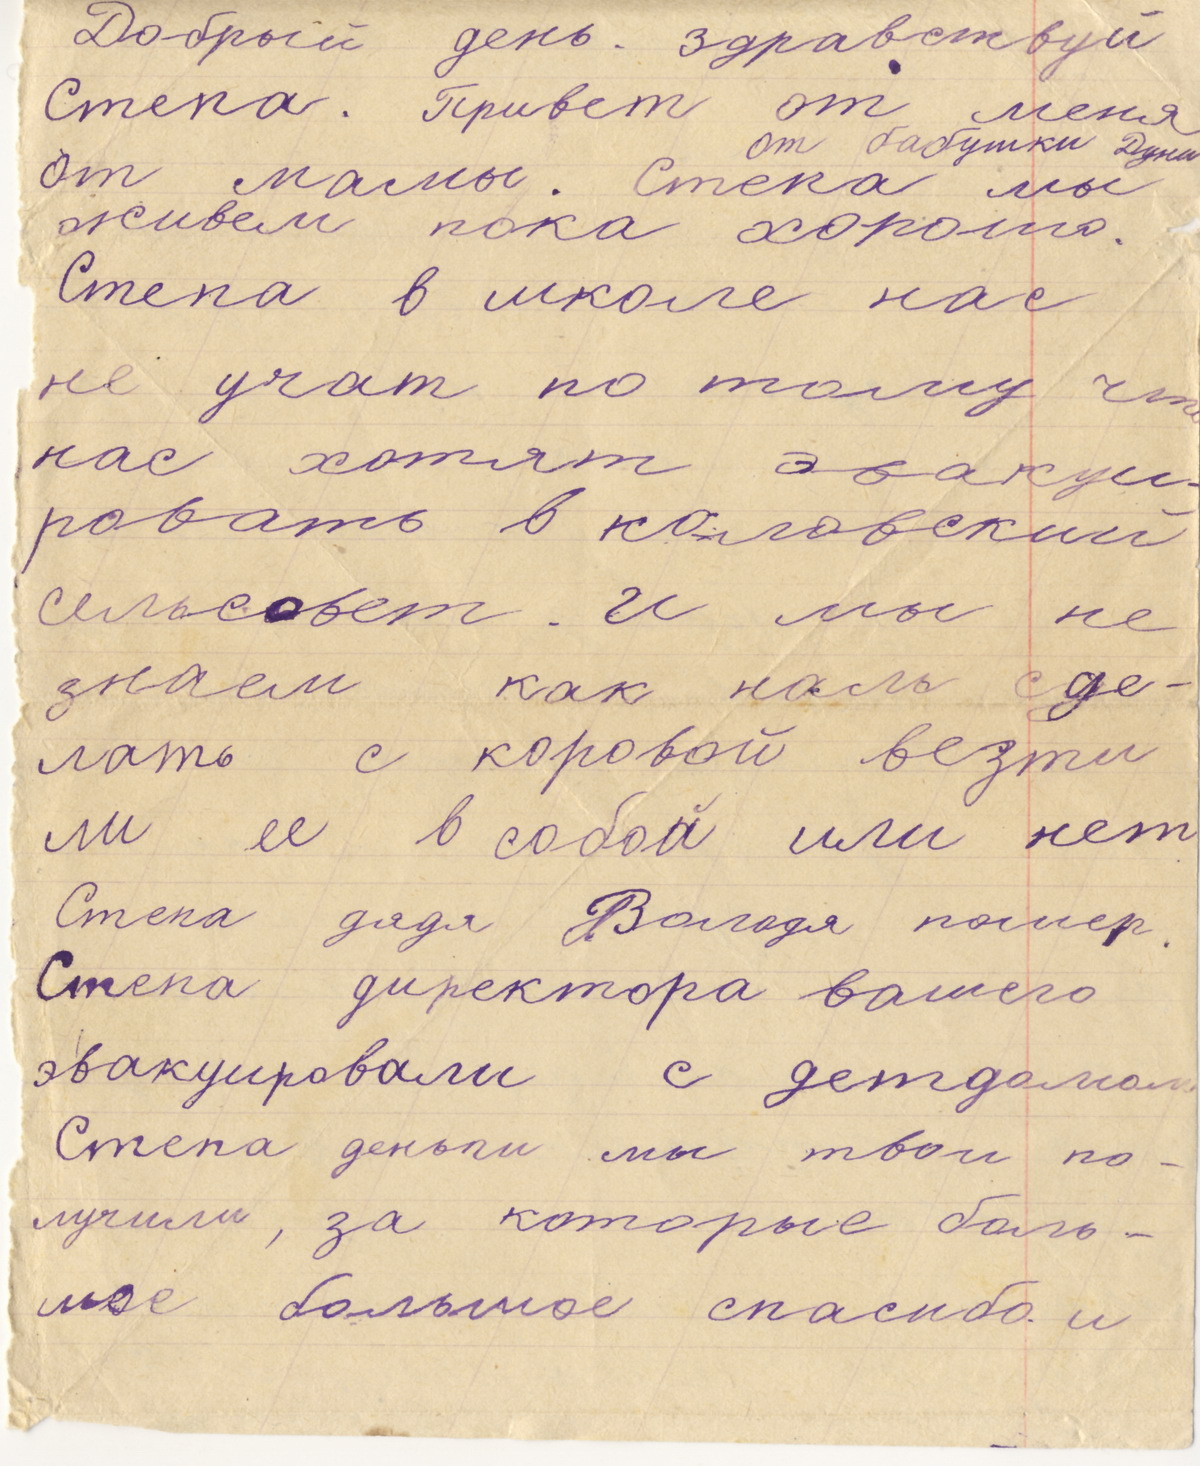 Добрый день. здравствуй
Степа. Привет от меня
от бабушки Дуни
От мамы. Степа мы
живем пока хорошо.
Степа в школе нас
не учат по тому что
нас хотят эвакуи-
ровать в каловский
сельсовет. И мы не
знаем как намь сде-
лать с коровой везти
ли ее в собой или нет
Степа дядя Володя помер.
Степа директора вашего
эвакуировали с детдомом
Степа деньги мы твои по-
лучили, за которые боль-
шое большое спасибо. и